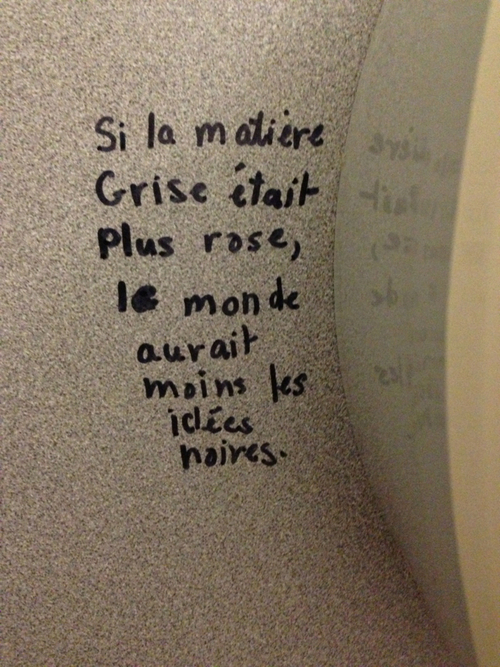 Si la matière
Grise était
Plus rose,
le monde
aurait
moins les
idées
noires.